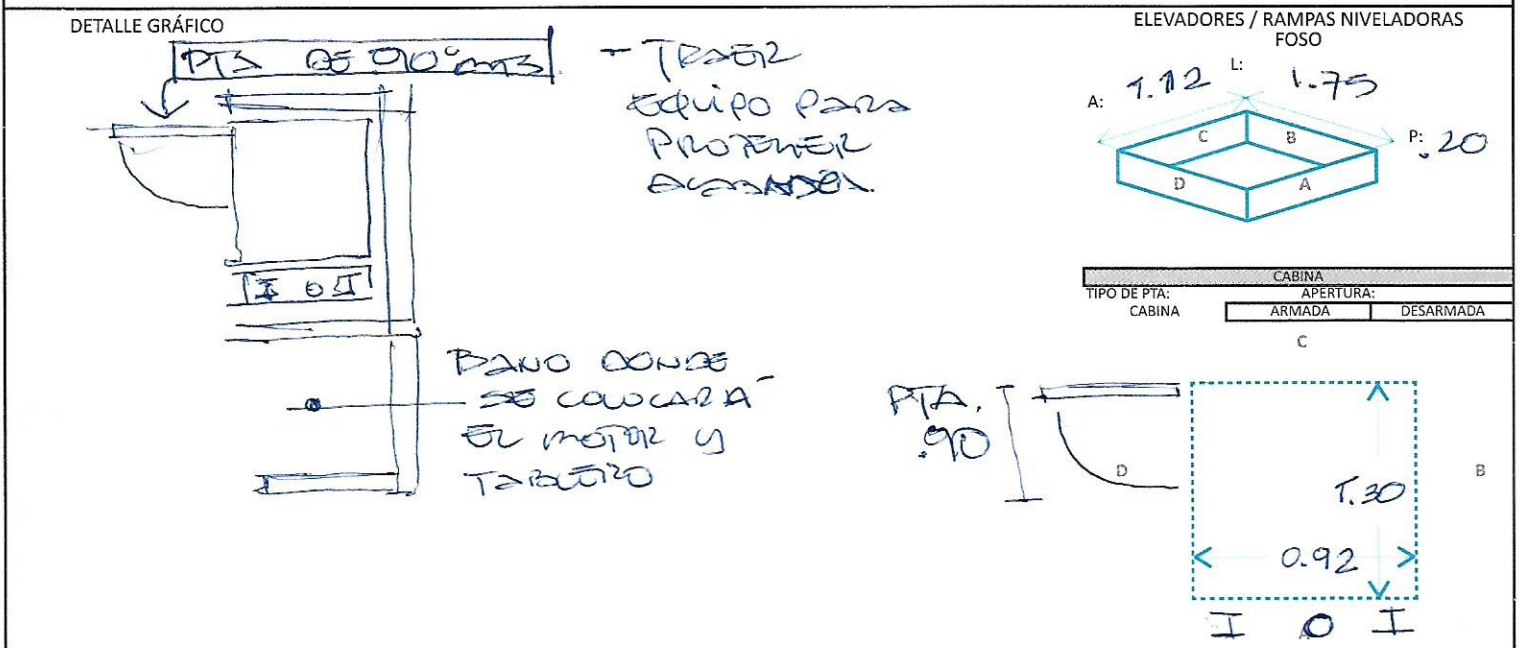 DETALLE GRÁFICO
PTS DE 90°mts
- TRAER
EQUIPO PARA
PROTEGER
ACABADOS.
I O I
BAÑO DONDE
SE COLOCARÁ
EL MOTOR Y
TABLERO
ELEVADORES / RAMPAS NIVELADORAS
FOSO
A: 1.12 L: 1.75
P: .20
C B
D A
CABINA
TIPO DE PTA: APERTURA:
CABINA ARMADA DESARMADA
C
PTA.
.90
D B
1.30
0.92
I O I